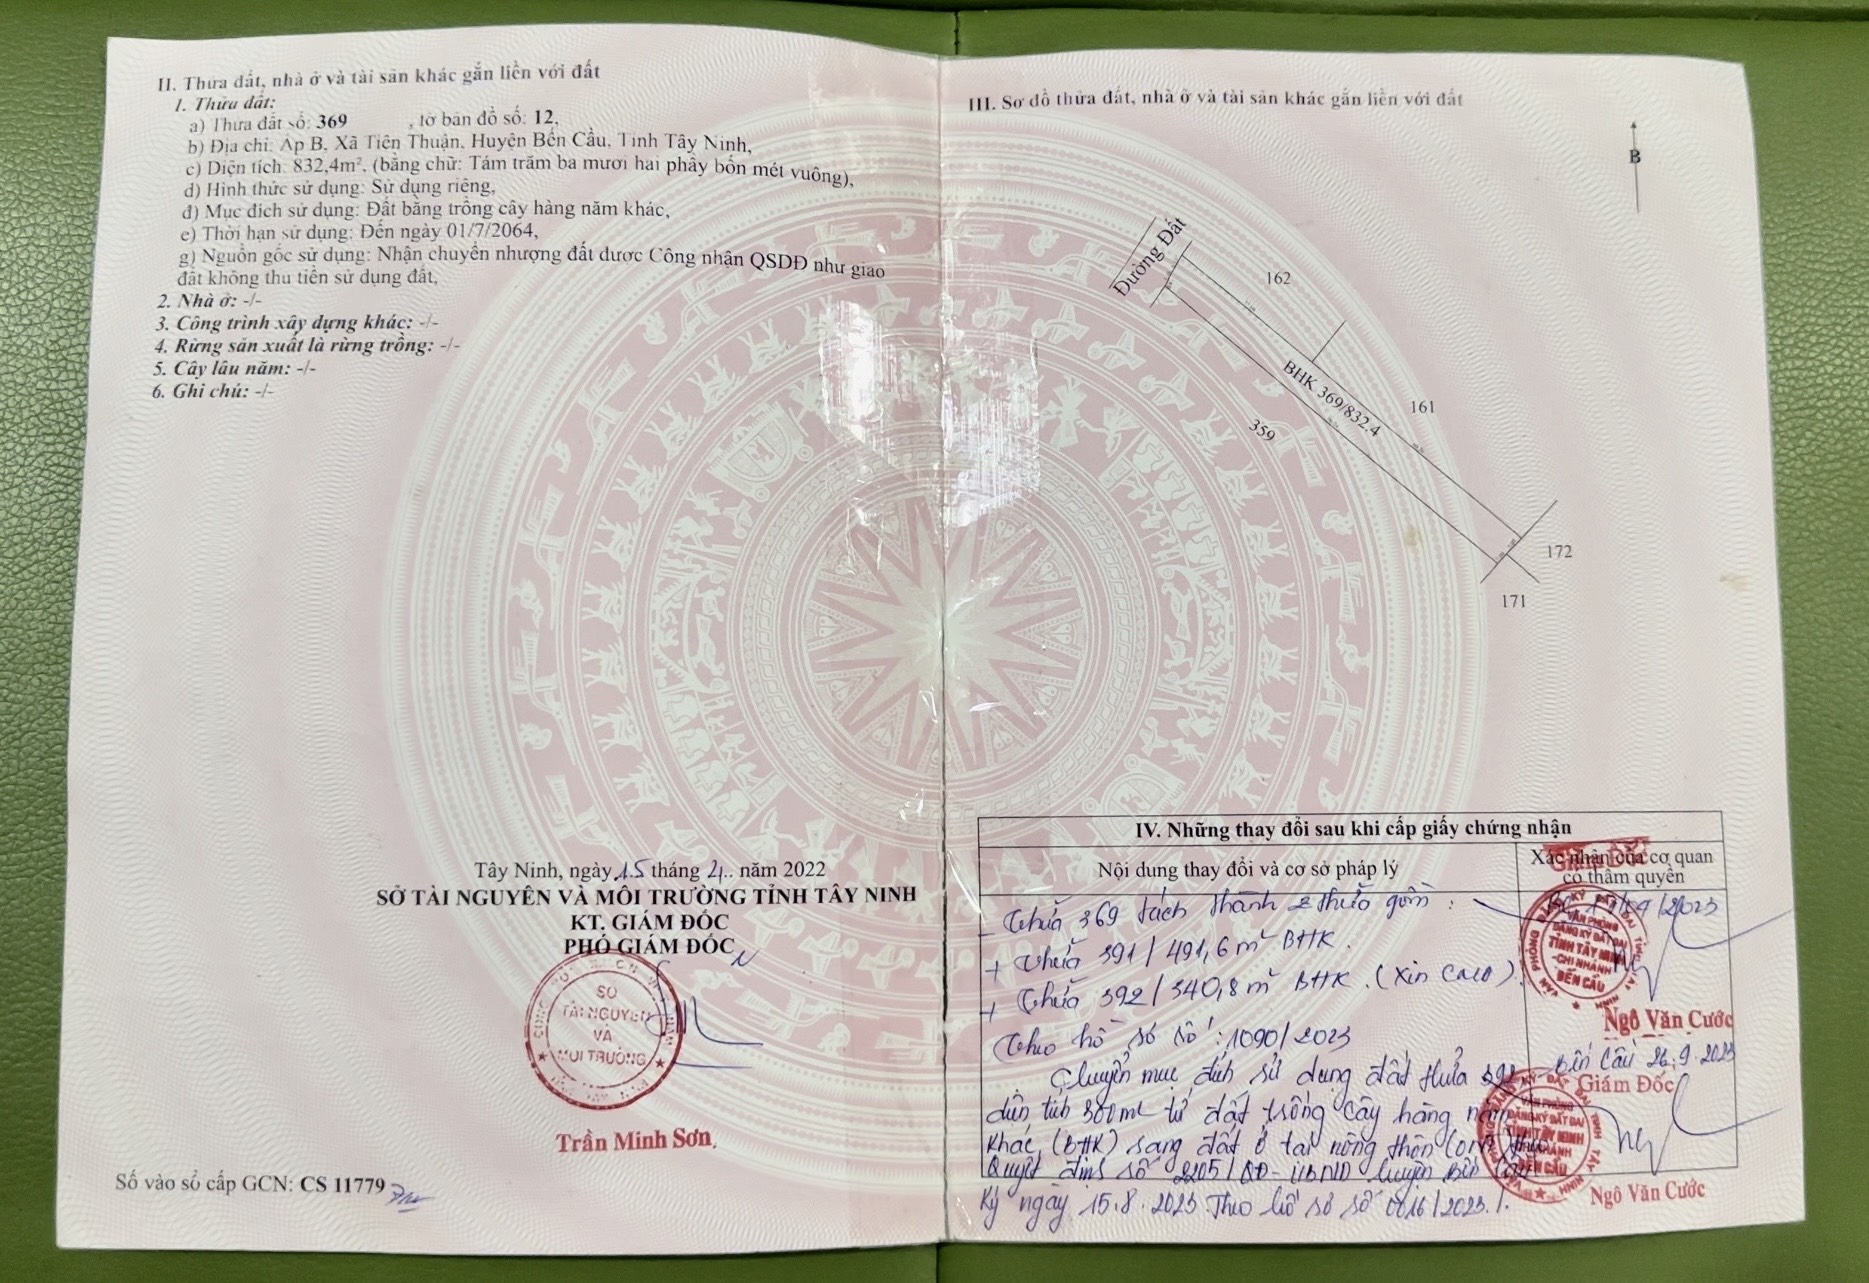 II. Thửa đất, nhà ở và tài sản khác gắn liền với đất
1. Thửa đất:
a) Thửa đất số: 369 , tờ bản đồ số: 12,
b) Địa chỉ: Ấp B, Xã Tiên Thuận, Huyện Bến Cầu, Tỉnh Tây Ninh,
c) Diện tích: 832,4m², (bằng chữ: Tám trăm ba mươi hai phẩy bốn mét vuông),
d) Hình thức sử dụng: Sử dụng riêng,
đ) Mục đích sử dụng: Đất bằng trồng cây hàng năm khác,
e) Thời hạn sử dụng: Đến ngày 01/7/2064,
g) Nguồn gốc sử dụng: Nhận chuyển nhượng đất được Công nhận QSDĐ như giao
đất không thu tiền sử dụng đất,
2. Nhà ở: -/-
3. Công trình xây dựng khác: -/-
4. Rừng sản xuất là rừng trồng: -/-
5. Cây lâu năm: -/-
6. Ghi chú: -/-
Tây Ninh, ngày 15 tháng 4.. năm 2022
SỞ TÀI NGUYÊN VÀ MÔI TRƯỜNG TỈNH TÂY NINH
KT. GIÁM ĐỐC
PHÓ GIÁM ĐỐC
SỞ
TÀI NGUYÊN
VÀ
MÔI TRƯỜNG
Trần Minh Sơn
Số vào sổ cấp GCN: CS 11779
III. Sơ đồ thửa đất, nhà ở và tài sản khác gắn liền với đất
B
Đường Đất
162
BHK 369/832.4
161
359
172
171
IV. Những thay đổi sau khi cấp giấy chứng nhận
Nội dung thay đổi và cơ sở pháp lý
Xác nhận của cơ quan
có thẩm quyền
- Thửa 369 tách thành 2 thửa gồm:
+ Thửa 391/491,6m² BHK.
+ Thửa 392/340,8m² BHK. (Xin cấp).
Theo hồ sơ số: 1090/2023
/09/2023
VĂN PHÒNG
ĐĂNG KÝ ĐẤT ĐAI
TỈNH TÂY NINH
-CHI NHÁNH
BẾN CẦU
Ngô Văn Cước
Chuyển mục đích sử dụng đất thửa 392
diện tích 300m² từ đất trồng cây hàng năm
khác (BHK) sang đất ở tại nông thôn theo
Quyết định số 2205/QĐ-UBND huyện Bến Cầu
Ký ngày 15.8.2023 Theo hồ sơ số 0016/2023./.
Bến Cầu 26.9.2023
Giám Đốc
VĂN PHÒNG
ĐĂNG KÝ ĐẤT ĐAI
TỈNH TÂY NINH
CHI NHÁNH
BẾN CẦU
Ngô Văn Cước